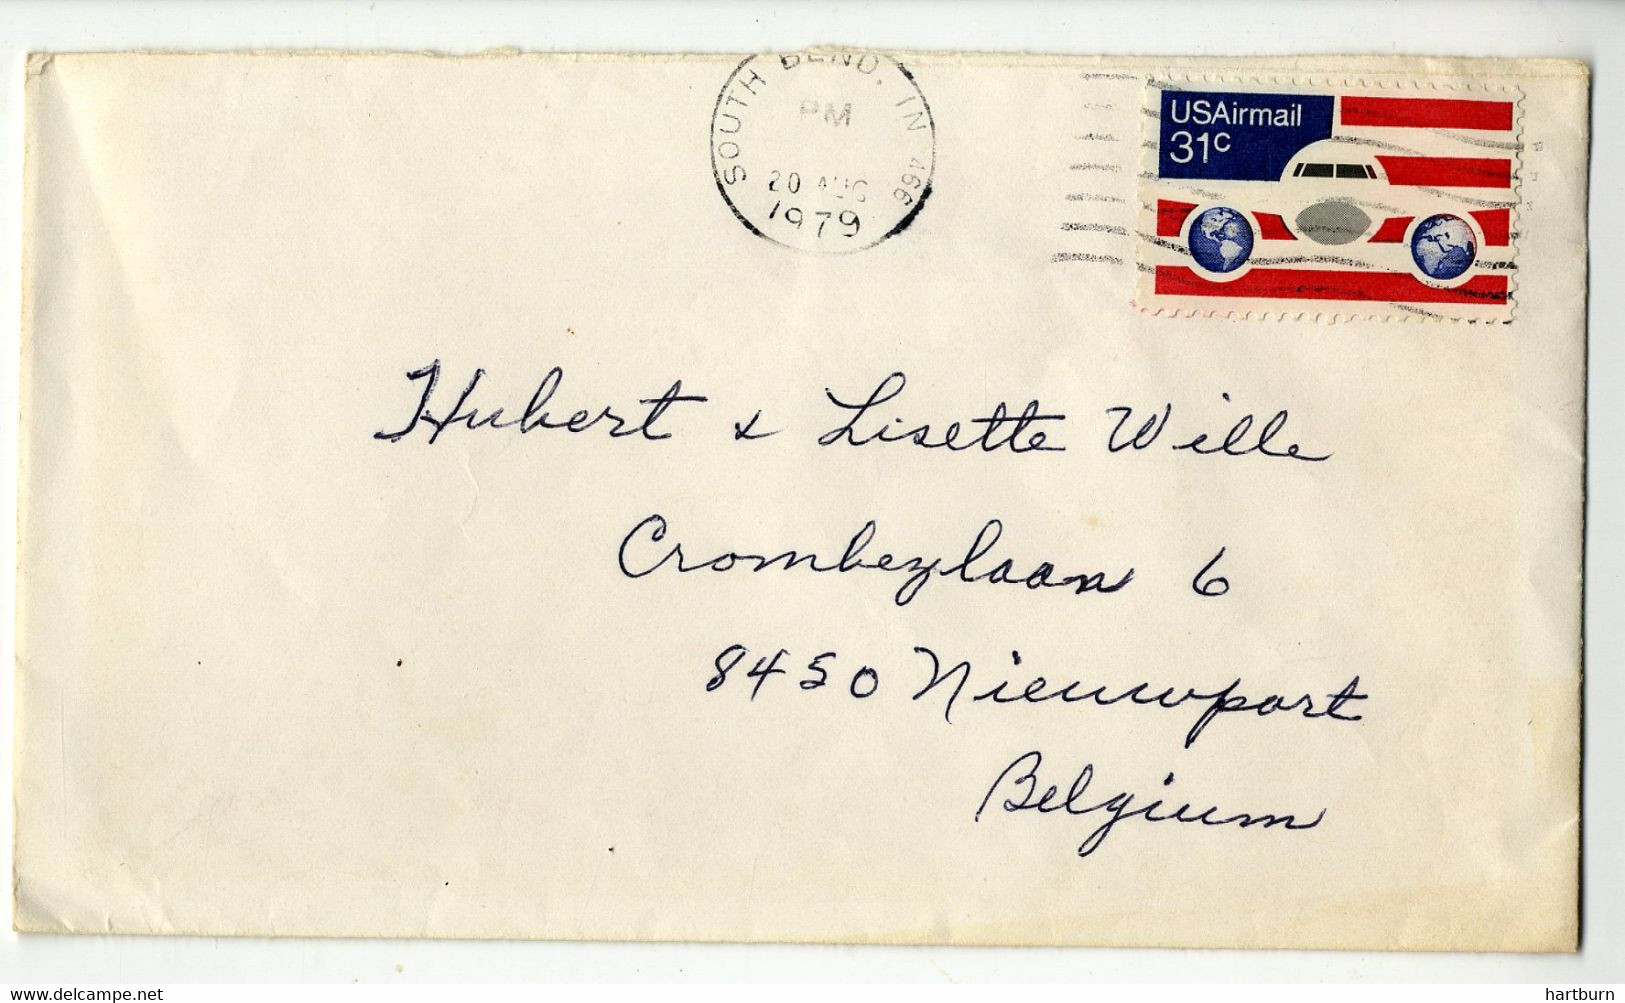 SOUTH BEND, IN 466
PM
20 AUG
1979
USAirmail
31c
Hubert & Lisette Wille
Crombezlaan 6
8450 Nieuwport
Belgium
www.delcampe.net
hartburn